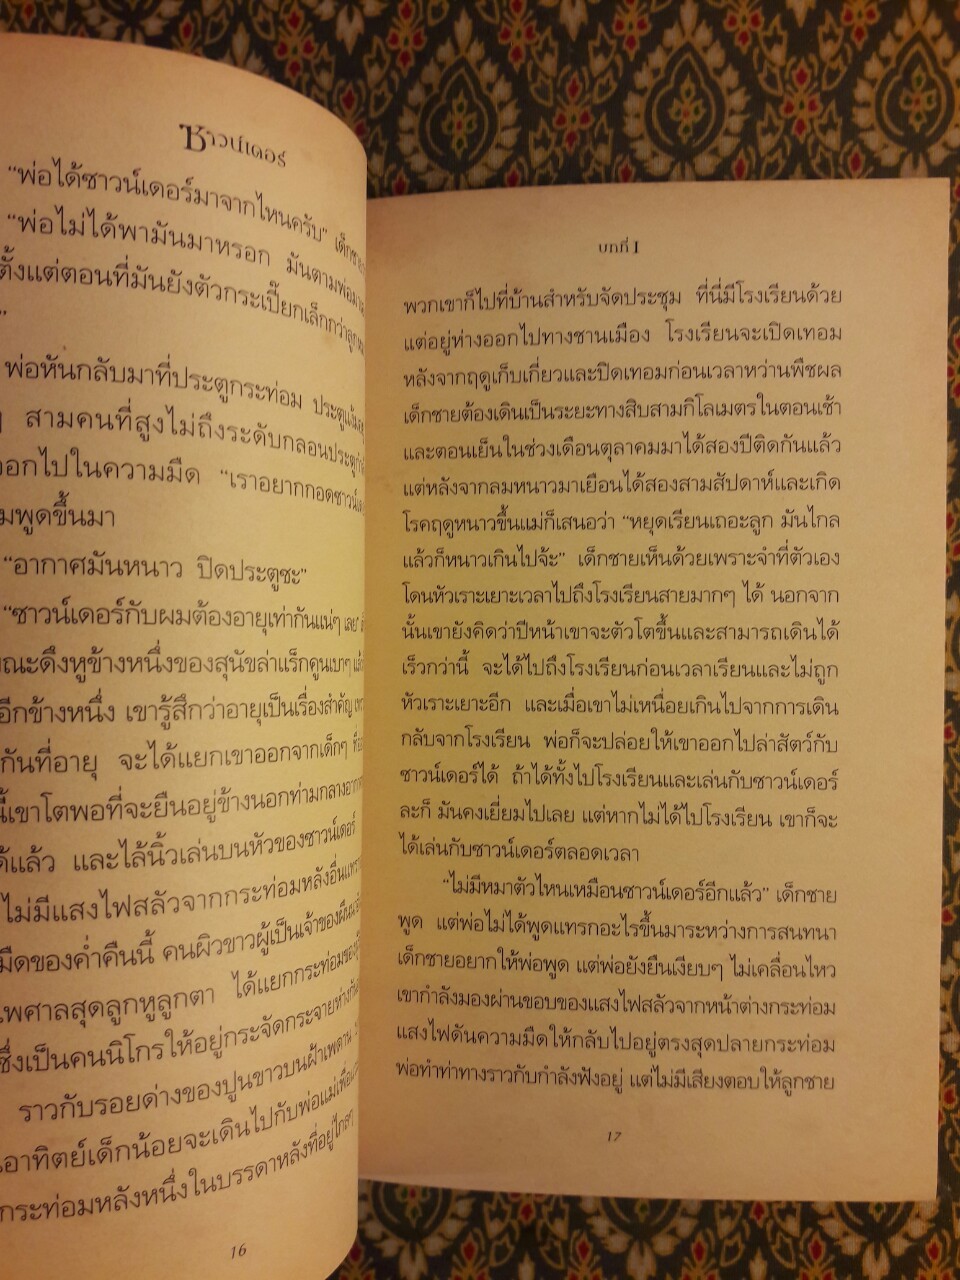 ซาวน์เดอร์
“พ่อได้ซาวน์เดอร์มาจากไหนครับ” เด็กชาย
“พ่อไม่ได้พามันมาหรอก มันตามพ่อมา
ตั้งแต่ตอนที่มันยังตัวกระเปี๊ยกเล็กกว่าลูก
”
พ่อหันกลับมาที่ประตูกระท่อม ประตูแง้ม
ๆ สามคนที่สูงไม่ถึงระดับกลอนประตู
ออกไปในความมืด “เราอยากกอดซาวน์เดอร์
มพูดขึ้นมา
“อากาศมันหนาว ปิดประตูซะ”
“ซาวน์เดอร์กับผมต้องอายุเท่ากันแน่ๆ เลย”
ขณะดึงหูข้างหนึ่งของสุนัขล่าแร็กคูนเบาๆ แล้ว
อีกข้างหนึ่ง เขารู้สึกว่าอายุเป็นเรื่องสำคัญ เพราะ
กันที่อายุ จะได้แยกเขาออกจากเด็กๆ
นี้เขาโตพอที่จะยืนอยู่ข้างนอกท่ามกลางอากาศ
ด้แล้ว และไล้นิ้วเล่นบนหัวของซาวน์เดอร์
ไม่มีแสงไฟสลัวจากกระท่อมหลังอื่นแทรก
มืดของค่ำคืนนี้ คนผิวขาวผู้เป็นเจ้าของผืนดิน
ไพศาลสุดลูกหูลูกตา ได้แยกกระท่อมของ
ซึ่งเป็นคนนิโกรให้อยู่กระจัดกระจายห่างกัน
ราวกับรอยด่างของปูนขาวบนฝ้าเพดาน
อาทิตย์เด็กน้อยจะเดินไปกับพ่อแม่เพื่อ
กระท่อมหลังหนึ่งในบรรดาหลังที่อยู่ไกลๆ
16
บทที่ 1
พวกเขาก็ไปที่บ้านสำหรับจัดประชุม ที่นี่มีโรงเรียนด้วย
แต่อยู่ห่างออกไปทางชานเมือง โรงเรียนจะเปิดเทอม
หลังจากฤดูเก็บเกี่ยวและปิดเทอมก่อนเวลาหว่านพืชผล
เด็กชายต้องเดินเป็นระยะทางสิบสามกิโลเมตรในตอนเช้า
และตอนเย็นในช่วงเดือนตุลาคมมาได้สองปีติดกันแล้ว
แต่หลังจากลมหนาวมาเยือนได้สองสามสัปดาห์และเกิด
โรคฤดูหนาวขึ้นแม่ก็เสนอว่า “หยุดเรียนเถอะลูก มันไกล
แล้วก็หนาวเกินไปจ้ะ” เด็กชายเห็นด้วยเพราะจำที่ตัวเอง
โดนหัวเราะเยาะเวลาไปถึงโรงเรียนสายมากๆ ได้ นอกจาก
นั้นเขายังคิดว่าปีหน้าเขาจะตัวโตขึ้นและสามารถเดินได้
เร็วกว่านี้ จะได้ไปถึงโรงเรียนก่อนเวลาเรียนและไม่ถูก
หัวเราะเยาะอีก และเมื่อเขาไม่เหนื่อยเกินไปจากการเดิน
กลับจากโรงเรียน พ่อก็จะปล่อยให้เขาออกไปล่าสัตว์กับ
ซาวน์เดอร์ได้ ถ้าได้ทั้งไปโรงเรียนและเล่นกับซาวน์เดอร์
ละก็ มันคงเยี่ยมไปเลย แต่หากไม่ได้ไปโรงเรียน เขาก็จะ
ได้เล่นกับซาวน์เดอร์ตลอดเวลา
“ไม่มีหมาตัวไหนเหมือนซาวน์เดอร์อีกแล้ว” เด็กชาย
พูด แต่พ่อไม่ได้พูดแทรกอะไรขึ้นมาระหว่างการสนทนา
เด็กชายอยากให้พ่อพูด แต่พ่อยังยืนเงียบๆ ไม่เคลื่อนไหว
เขากำลังมองผ่านขอบของแสงไฟสลัวจากหน้าต่างกระท่อม
แสงไฟดันความมืดให้กลับไปอยู่ตรงสุดปลายกระท่อม
พ่อทำท่าทางราวกับกำลังฟังอยู่ แต่ไม่มีเสียงตอบให้ลูกชาย
17